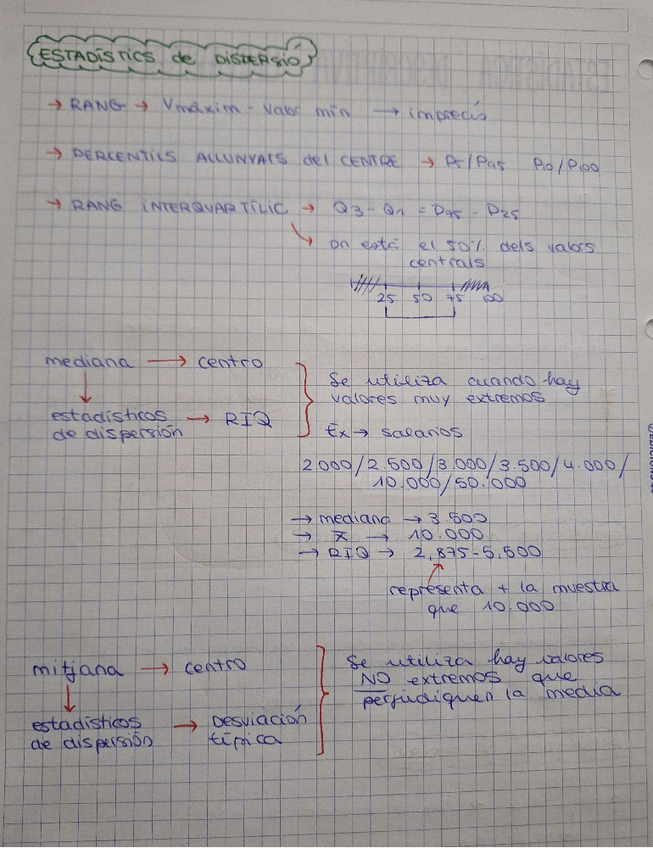 ESTADÍSTICS de DISPERSIÓ
→ RANG → Vmàxim - Valor mín → imprecís
→ PERCENTILS ALLUNYATS del CENTRE → P5/P95 P10/P100
→ RANG INTERQUARTÍLIC → Q3-Q1 = P75 - P25
↘ on està el 50% dels valors
centrals
25 50 75 100
mediana → centro
↓
estadísticos → RIQ
de dispersión
Se utiliza cuando hay
valores muy extremos
Ex → salarios
2.000/2.500/3.000/3.500/4.000/
10.000/50.000
→ mediana → 3.500
→ x̄ → 10.000
→ RIQ → 2,875-5,500
representa + la muestra
que 10.000
mitjana → centro
↓
estadísticos → desviación
de dispersión típica
Se utiliza hay valores
NO extremos que
perjudiquen la media